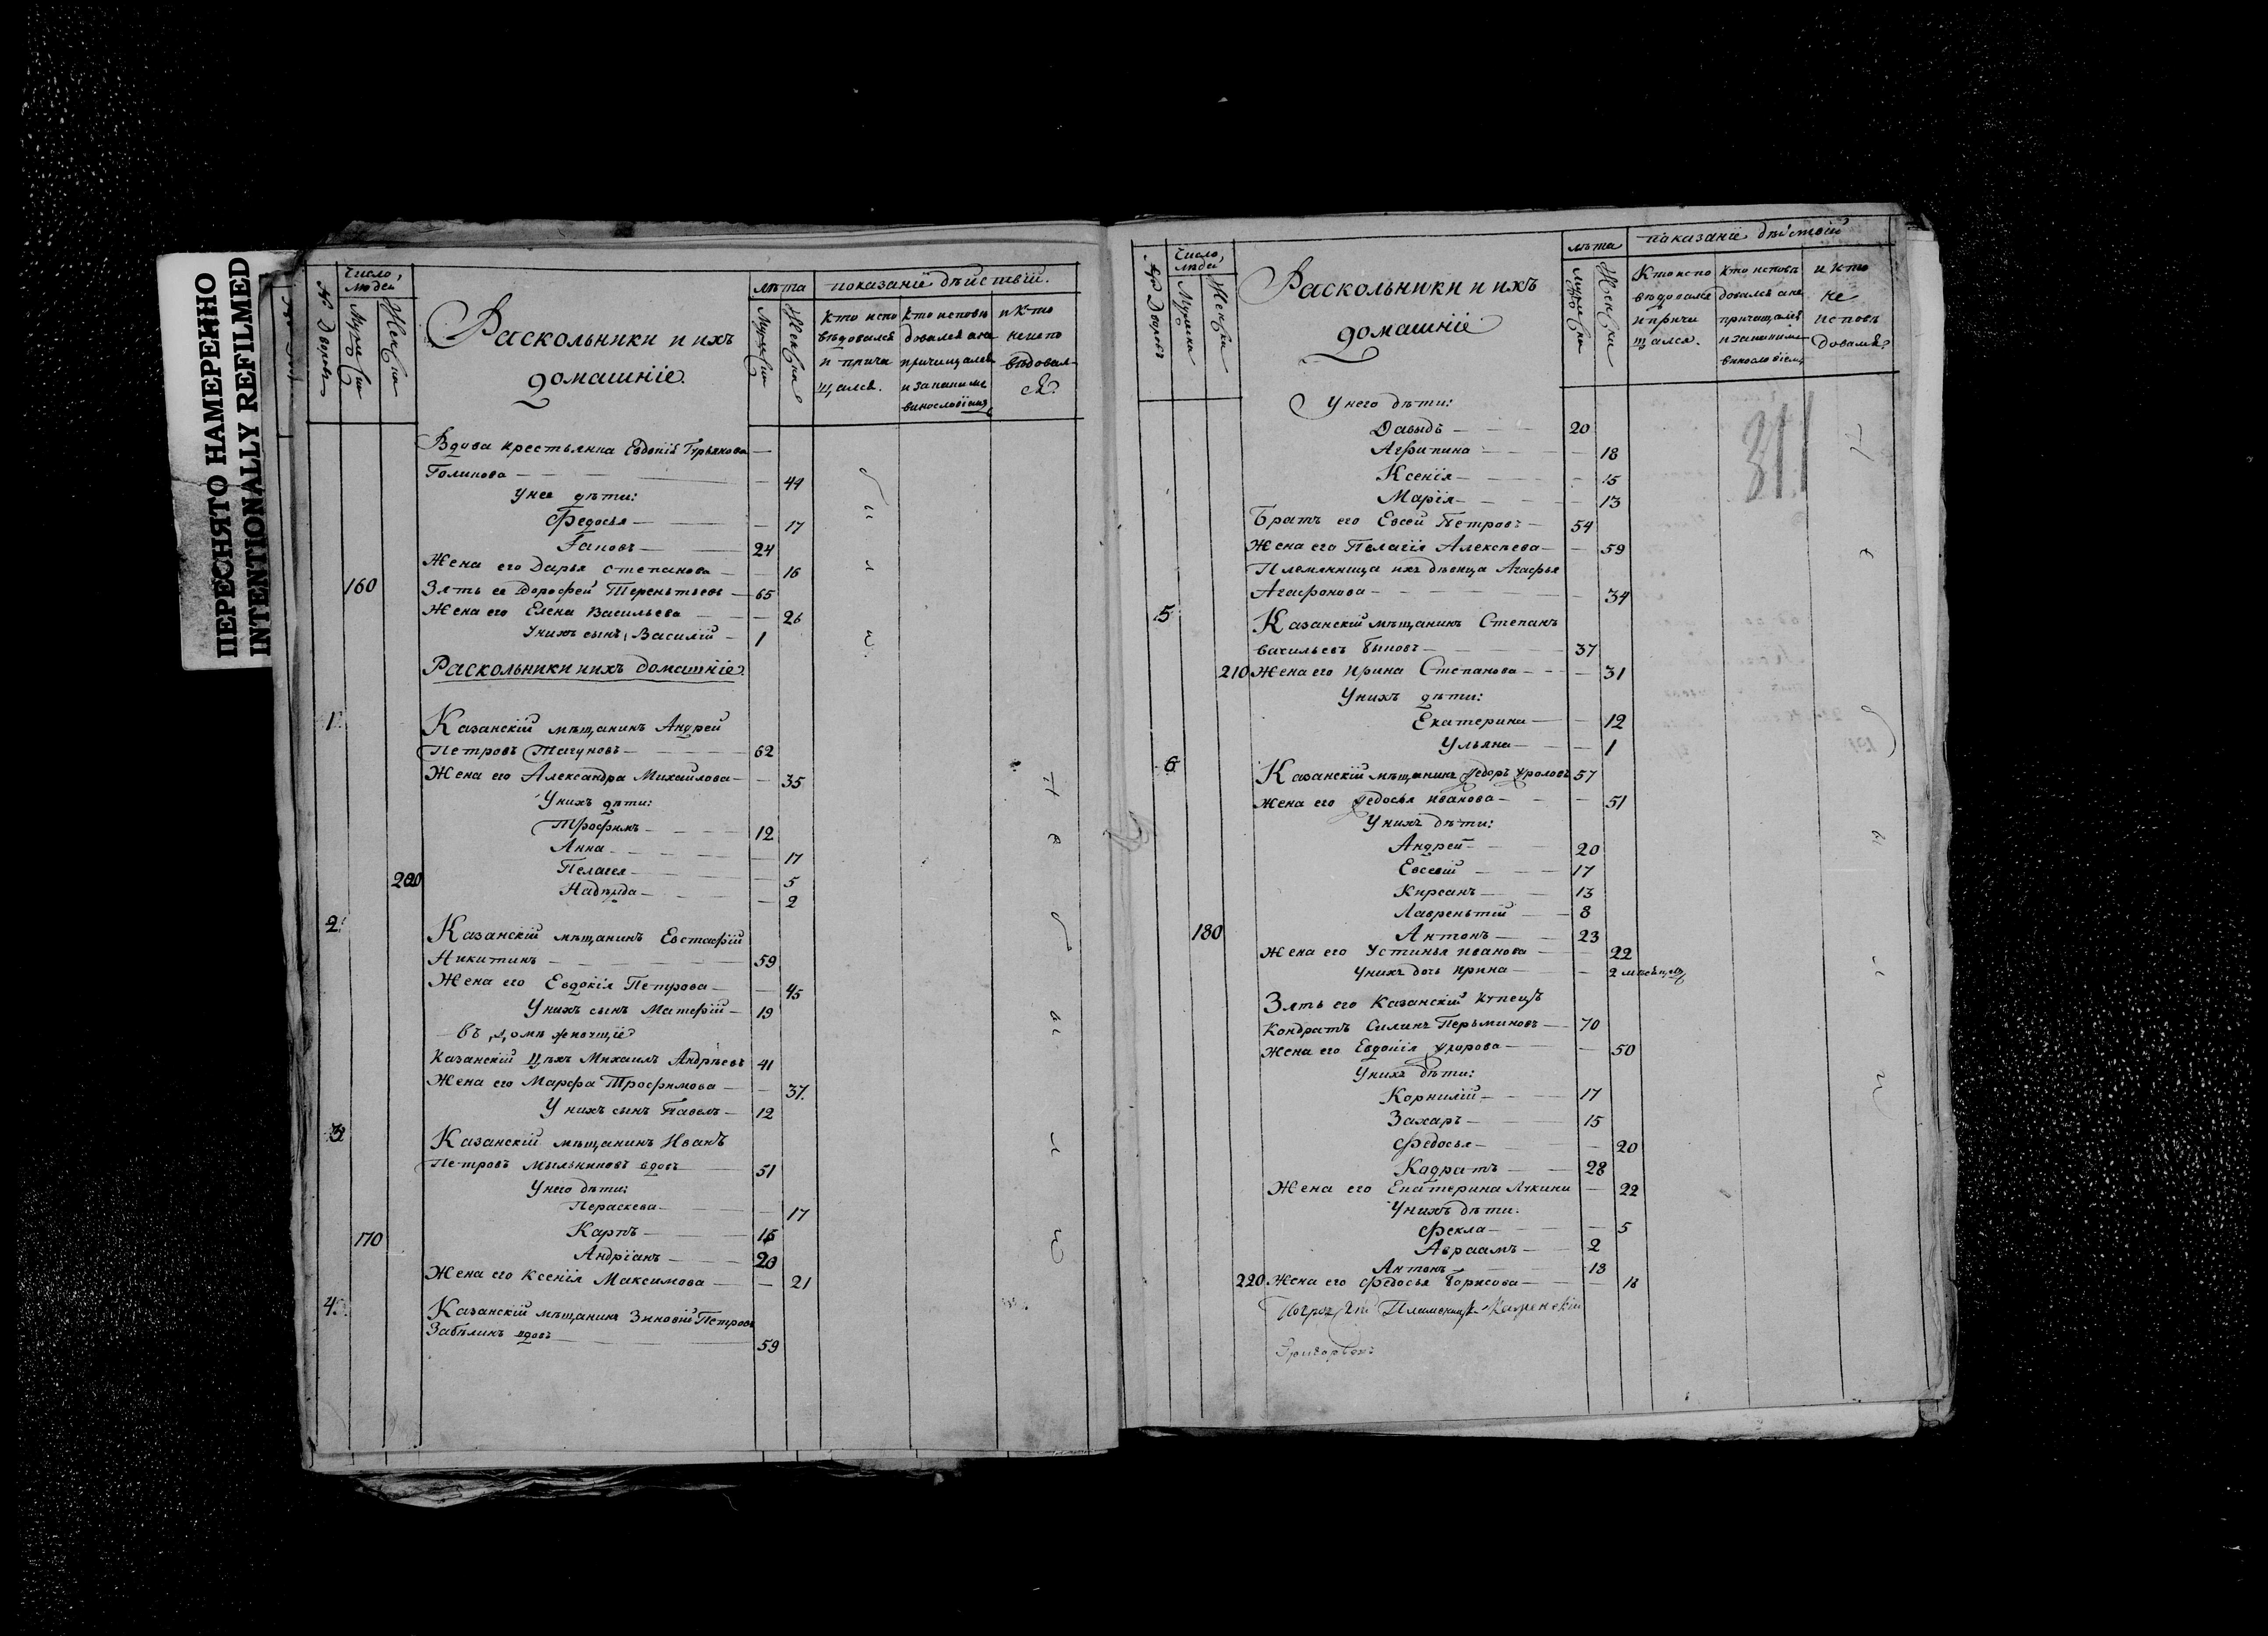 ПЕРЕСНЯТО НАМЕРЕННО
INTENTIONALLY REFILMED
№ Дворовъ
Число людей
Мужеска
Женска
Раскольники и ихъ
домашніе.
лѣта
Мужеска
Женска
показаніе дѣйствій.
Кто испо
вѣдовался
и прича
щался.
Кто исповѣ
довался а не
причащался
и за какимъ
винословіемъ
и Кто
не испо
вѣдовал-
ся?
Вдова крестьянка Евдокія Гурьянова —
Голикова — 44
У нее дѣти:
Федосья — 17
Гаповъ — 24
Жена его Дарья Степанова — 16
160 Зять ее Дорофей Тереньтьевъ — 65
Жена его Елена Васильева — 26
У нихъ сынъ, Василій — 1
Раскольники ихъ домашніе.
1. Казанскій мѣщанинъ Андрей
Петровъ — 62
Жена его Александра Михайлова — 35
У нихъ дѣти:
Трофимъ — 12
Анна — 17
Пелагея — 5
200 Надежда — 2
2. Казанскій мѣщанинъ Евстафій
Никитинъ — 59
Жена его Евдокія Петрова — 45
У нихъ сынъ Матфій — 19
въ домѣ
Казанскій Цехъ Михаилъ Андрѣевъ 41
Жена его Марфа Трофимова — 37.
У нихъ сынъ Павелъ — 12
3 Казанскій мѣщанинъ Иванъ
Петровъ Мыльниковъ вдовъ 51
У него дѣти:
Параскева — 17
170 Карпъ — 15
Андріанъ — 20
Жена его Ксенія Максимова — 21
4. Казанскій мѣщанинъ Зиновій Петровъ
Забѣлинъ вдовъ — 59
не бы ли
Дворовъ
Число людей
Мужеска
Женска
Раскольники и ихъ
домашніе
лѣта
Мужеска
Женска
показаніе дѣйствій
Кто испо
вѣдовался
и прича
щался.
Кто исповѣ
довался а не
причащался
и за какимъ
винословіемъ
и Кто
не
исповѣ
довался?
311
У него дѣти:
Давыдъ — 20
Агрипина — 18
Ксенія — 15
Марія — 13
Братъ его Евсей Петровъ — 54
Жена его Пелагія Алексѣева — 59
Племянница ихъ дѣвица Агафья
Агафонова — 34
5 Казанскій мѣщанинъ Степанъ
Васильевъ Быковъ — 37
210 Жена его Ирина Степанова — 31
У нихъ дѣти:
Екатерина — 12
Ульяна — 1
6 Казанскій мѣщанинъ Федоръ Фроловъ 57
Жена его Федосья Иванова — 51
У нихъ дѣти:
Андрей — 20
Евсевій — 17
Кирсанъ — 13
Лавреньтій — 8
180 Антонъ — 23
Жена его Устинья Иванова — 22
У нихъ дочь Ирина — 2 мѣсѣцовъ
Зять его Казанскій Купецъ
Кондратъ Силинъ Перьминовъ — 70
Жена его Евдокія — 50
У нихъ дѣти:
Корнилій — 17
Захаръ — 15
Федосья — 20
Кодратъ — 28
Жена его Екатерина Лукина — 22
У нихъ дѣти:
Фекла — 5
Авраамъ — 2
Антонъ — 18
220 Жена его Федосья Борисова — 18